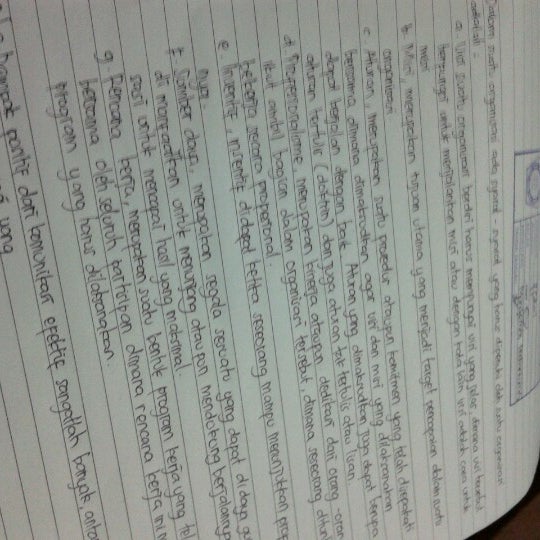 Dalam suatu organisasi ada syarat-syarat yang harus dipenuhi oleh suatu organisasi
adalah :
a. Visi suatu organisasi berdiri harus mempunyai visi yang jelas, dimana visi tersebut
berfungsi untuk menjalankan misi atau dengan kata lain visi adalah cara untuk
misi
b. Misi, merupakan tujuan utama yang menjadi target pencapaian dalam suatu
organisasi
c. Aturan, merupakan suatu prosedur ataupun komitmen yang telah disepakati
bersama dimana dimaksudkan agar visi dan misi yang dilaksanakan
dapat berjalan dengan baik. Aturan yang dimaksudkan juga dapat berupa
aturan tertulis (daftar) dan juga aturan tak tertulis atau lisan.
d. Profesionalisme, merupakan kinerja ataupun dedikasi dari orang-orang
ikut ambil bagian dalam organisasi tersebut, dimana seseorang ditun
bekerja secara proporsional.
e. Insentif, insentif didapat ketika seseorang mampu menunjukkan pre
nya.
f. Sumber daya, merupakan segala sesuatu yang dapat didaya gu
dan manfaatkan untuk menunjang ataupun mendukung berjalannya
sasi untuk mencapai hasil yang maksimal.
g. Rencana kerja, merupakan suatu bentuk program kerja yang tel
bersama oleh seluruh partisipan dimana rencana kerja ini m
program yang harus dilaksanakan.
dampak positif dari komunikasi efektif sangatlah banyak, anta
yang